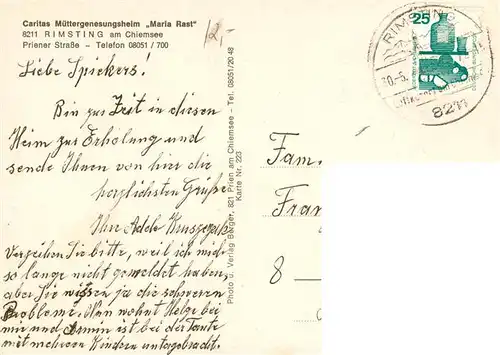 Caritas Müttergenesungsheim „Maria Rast“
8211 RIMSTING am Chiemsee
Priener Straße – Telefon 08051 / 700
12,-
RIMSTING
25
8211
Liebe Spiekers!
Bin zur Zeit in diesen
Heim zur Erholung und
sende Ihnen von hier die
herzlichsten Grüße
Ihre Adele
Verzeihen Sie bitte, weil ich mich
so lange nicht gemeldet haben,
aber Sie wissen ja die schweren
Probleme. Nun wohnt Helge bei
mir und Armin ist bei der Tante
mit meheren Kindern untergebracht.
Photo u. Verlag Berger, 821 Prien am Chiemsee - Tel. 08051/20 48
Karte Nr. 223
Fam.
Fran
8